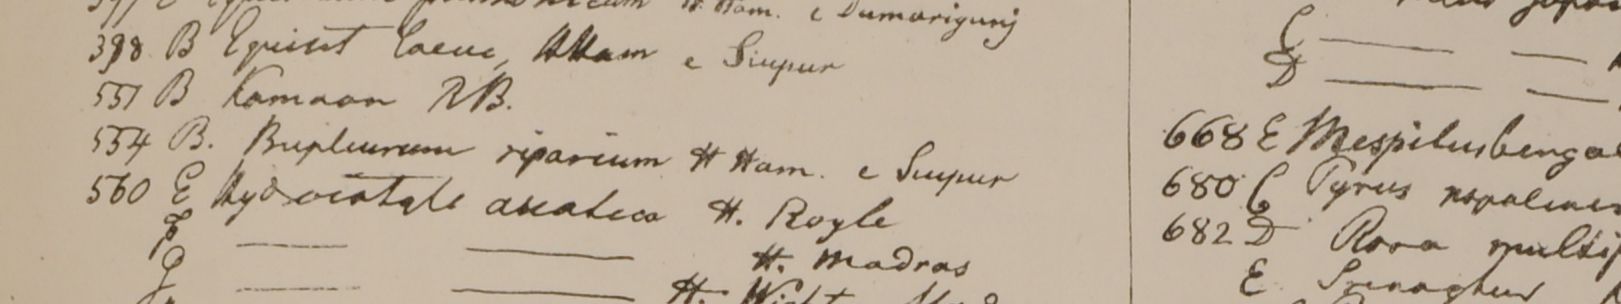 H. Ham. e Dumarigunj
398 B Equiset laeve, HHam e Siupur
551 B Kamaon RB.
554 B. Bupleurum riparium H Ham. e Siupur
560 E Hydrocotyle asiatica H. Royle
F — — H. Madras
G — — H. Wight
C — —
D — —
668 E Mespilus benga
680 C Pyrus nepalens
682 D Rosa multif
E Srinaghur